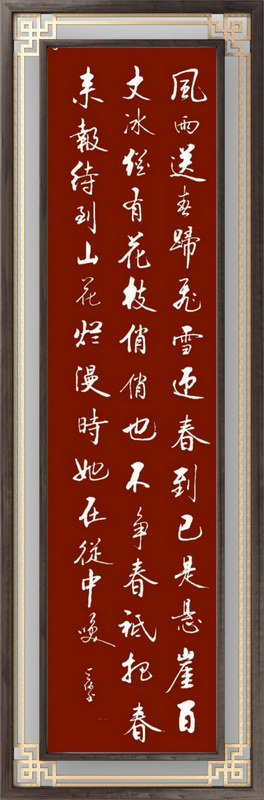 風雨送春歸飛雪迎春到已是懸崖百
丈冰有花枝俏俏也不争春祗把春
来報待到山花烂漫時她在從中笑